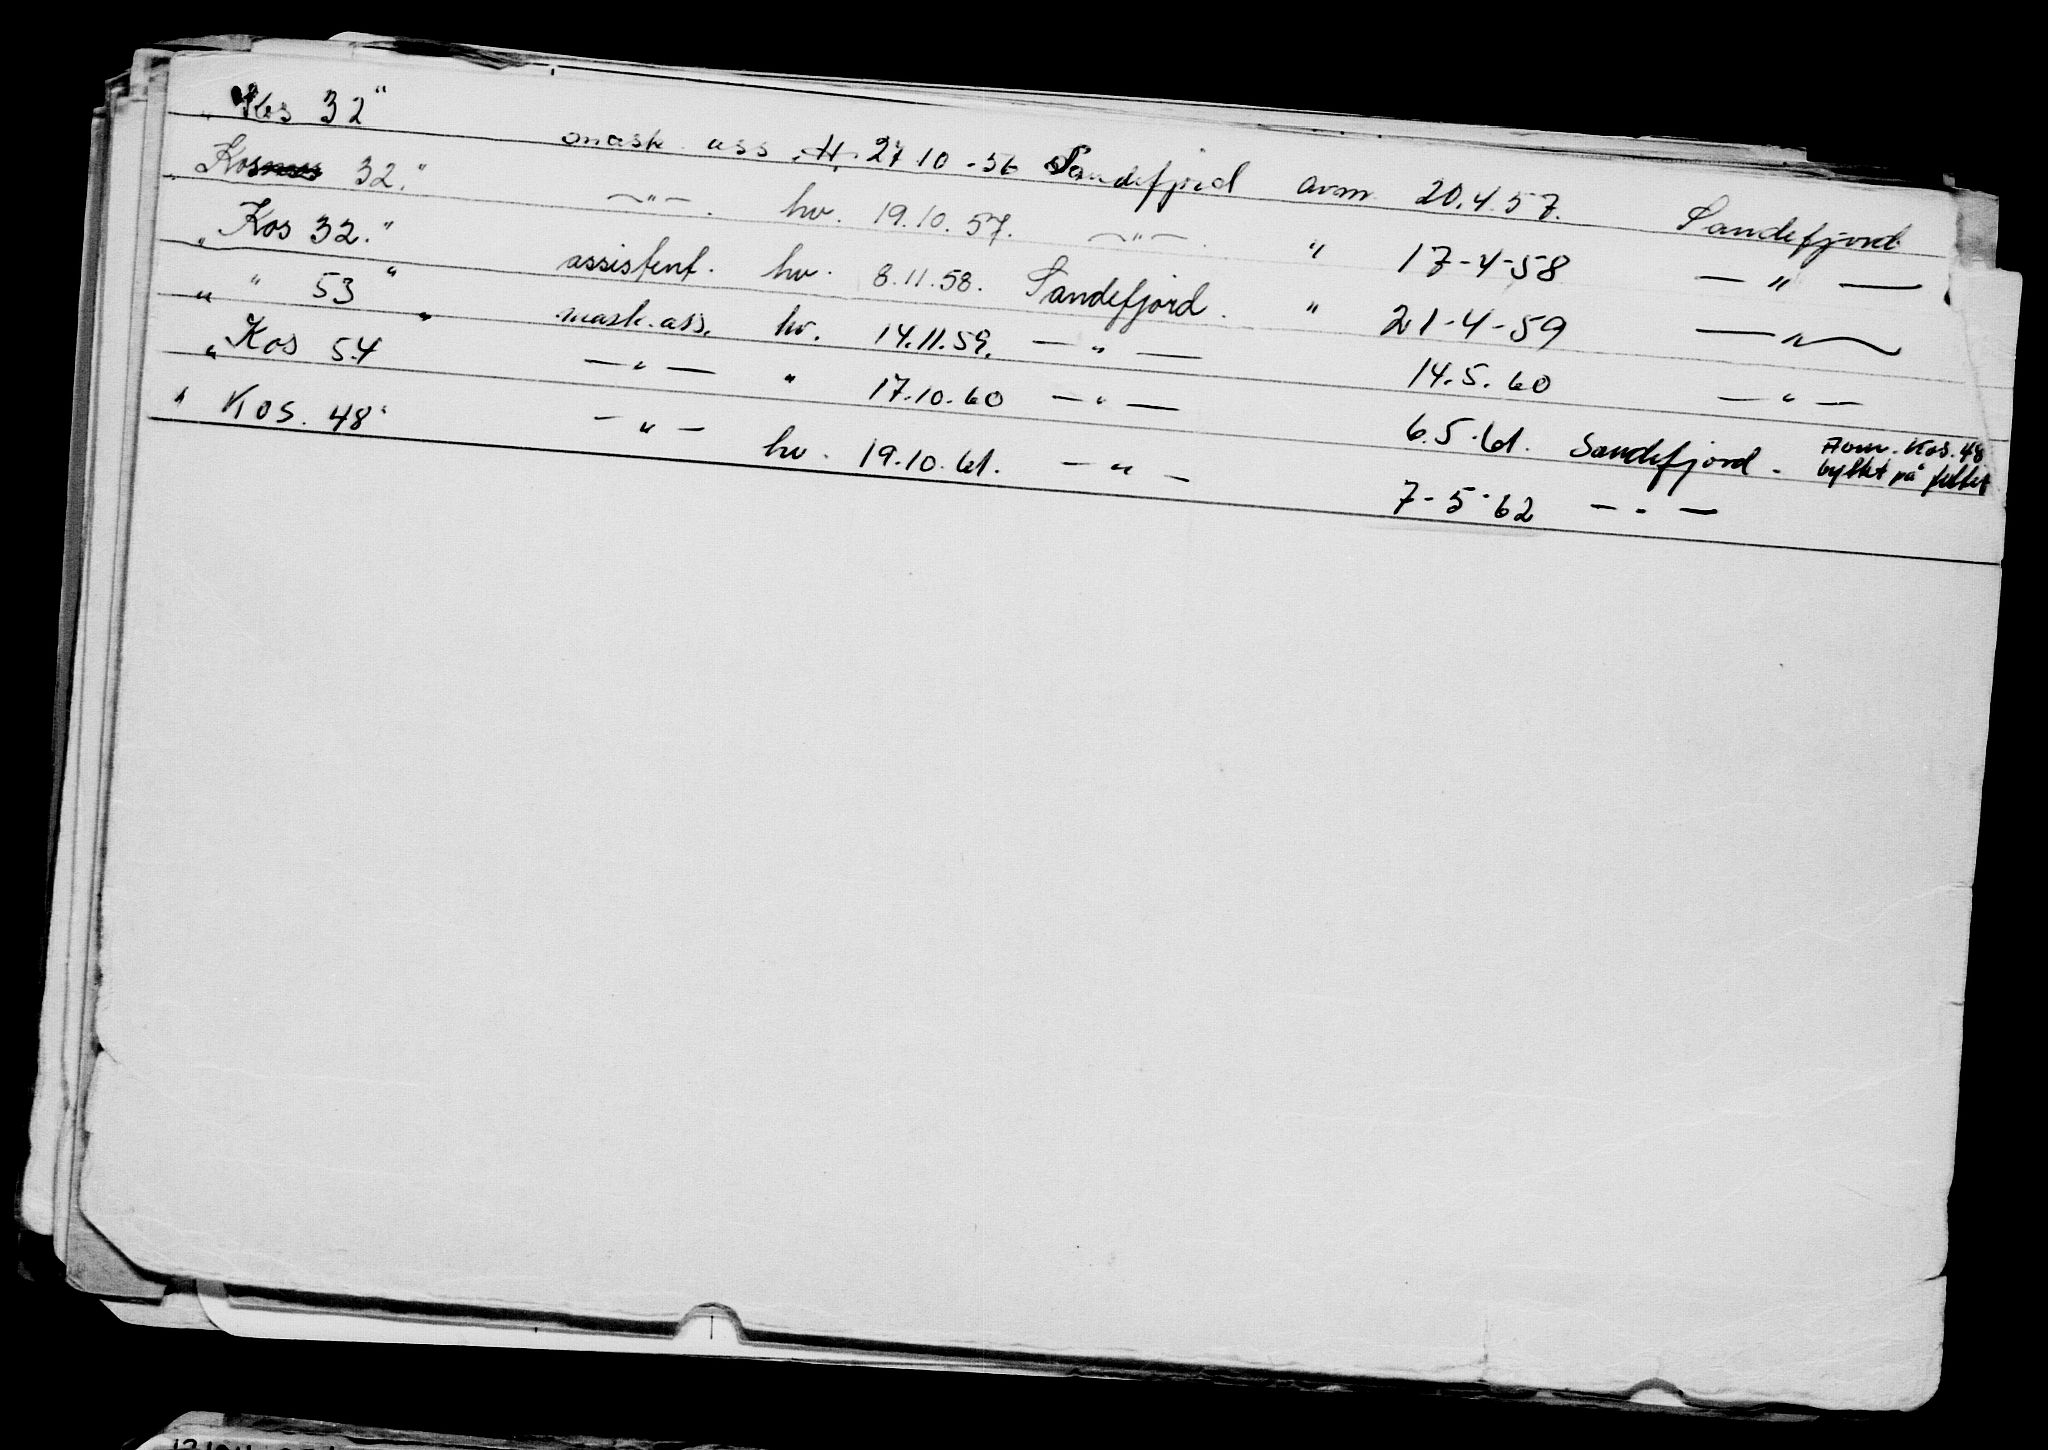 „Kos 32“ mask. ass. H. 27 10 - 56 Sandefjord avm. 20.4.57. Sandefjord
„Kos 32.“ —„—. hv. 19.10.57. —„—. " 17-4-58 — " —
„Kos 32.“ assistent. hv. 8.11.58. Sandefjord. " 21-4-59 — " —
„ " 53 “ mask. ass. hv. 14.11.59. — „ — 14.5.60 — " —
„Kos 54 “ — " — " 17.10.60 — " — 6.5.61. Sandefjord. Kos. 48
byttet på feltet
" Kos. 48" — " — hv. 19.10.61. — " — 7-5-62 — - —